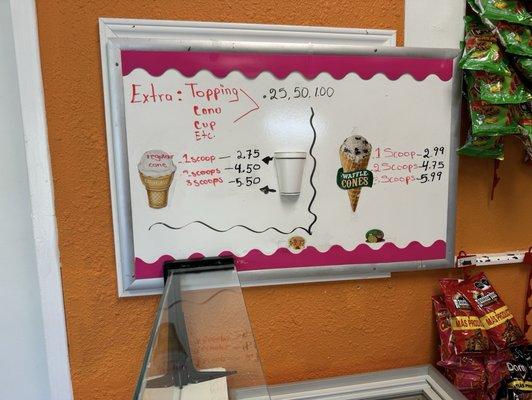 Extra: Topping .25, 50, 1.00
Cono
Cup
Etc.
regular cone
1 scoop - 2.75
2 scoops - 4.50
3 scoops - 5.50
WAFFLE CONES
1 Scoop - 2.99
2 Scoops - 4.75
3 Scoops - 5.99
MÁS PRODUCTO
MÁS PRODUCTO